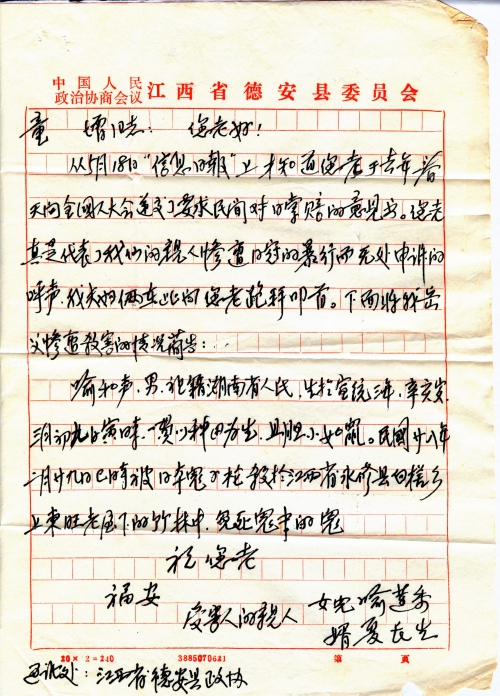 中国人民
政治协商会议 江西省德安县委员会
童增同志： 您老好！
从5月18日“信息日报”上才知道您老于去年春
天向全国人大会递交了要求民间对日索赔的意见书。您老
真是代表了我们的亲人惨遭日寇的暴行而无处申诉的
呼声，我夫妇俩在此向您老跪拜叩首。下面将我岳
父惨遭杀害的情况简告：
喻和声，男，祖籍湖南省人氏，生于宣统三年，辛亥岁
三月初九日寅时，一贯以种田为生，且胆小如鼠。民国廿八年
二月十九日巳时被日本鬼子枪杀于江西省永修县白槎乡
上东旺老屋下的竹林中，冤死鬼中的鬼
祝您老
福安
受害人的亲人 女儿喻莲香
婿夏长生
20×2=240 3885070621 第 页
通讯处：江西省德安县政协